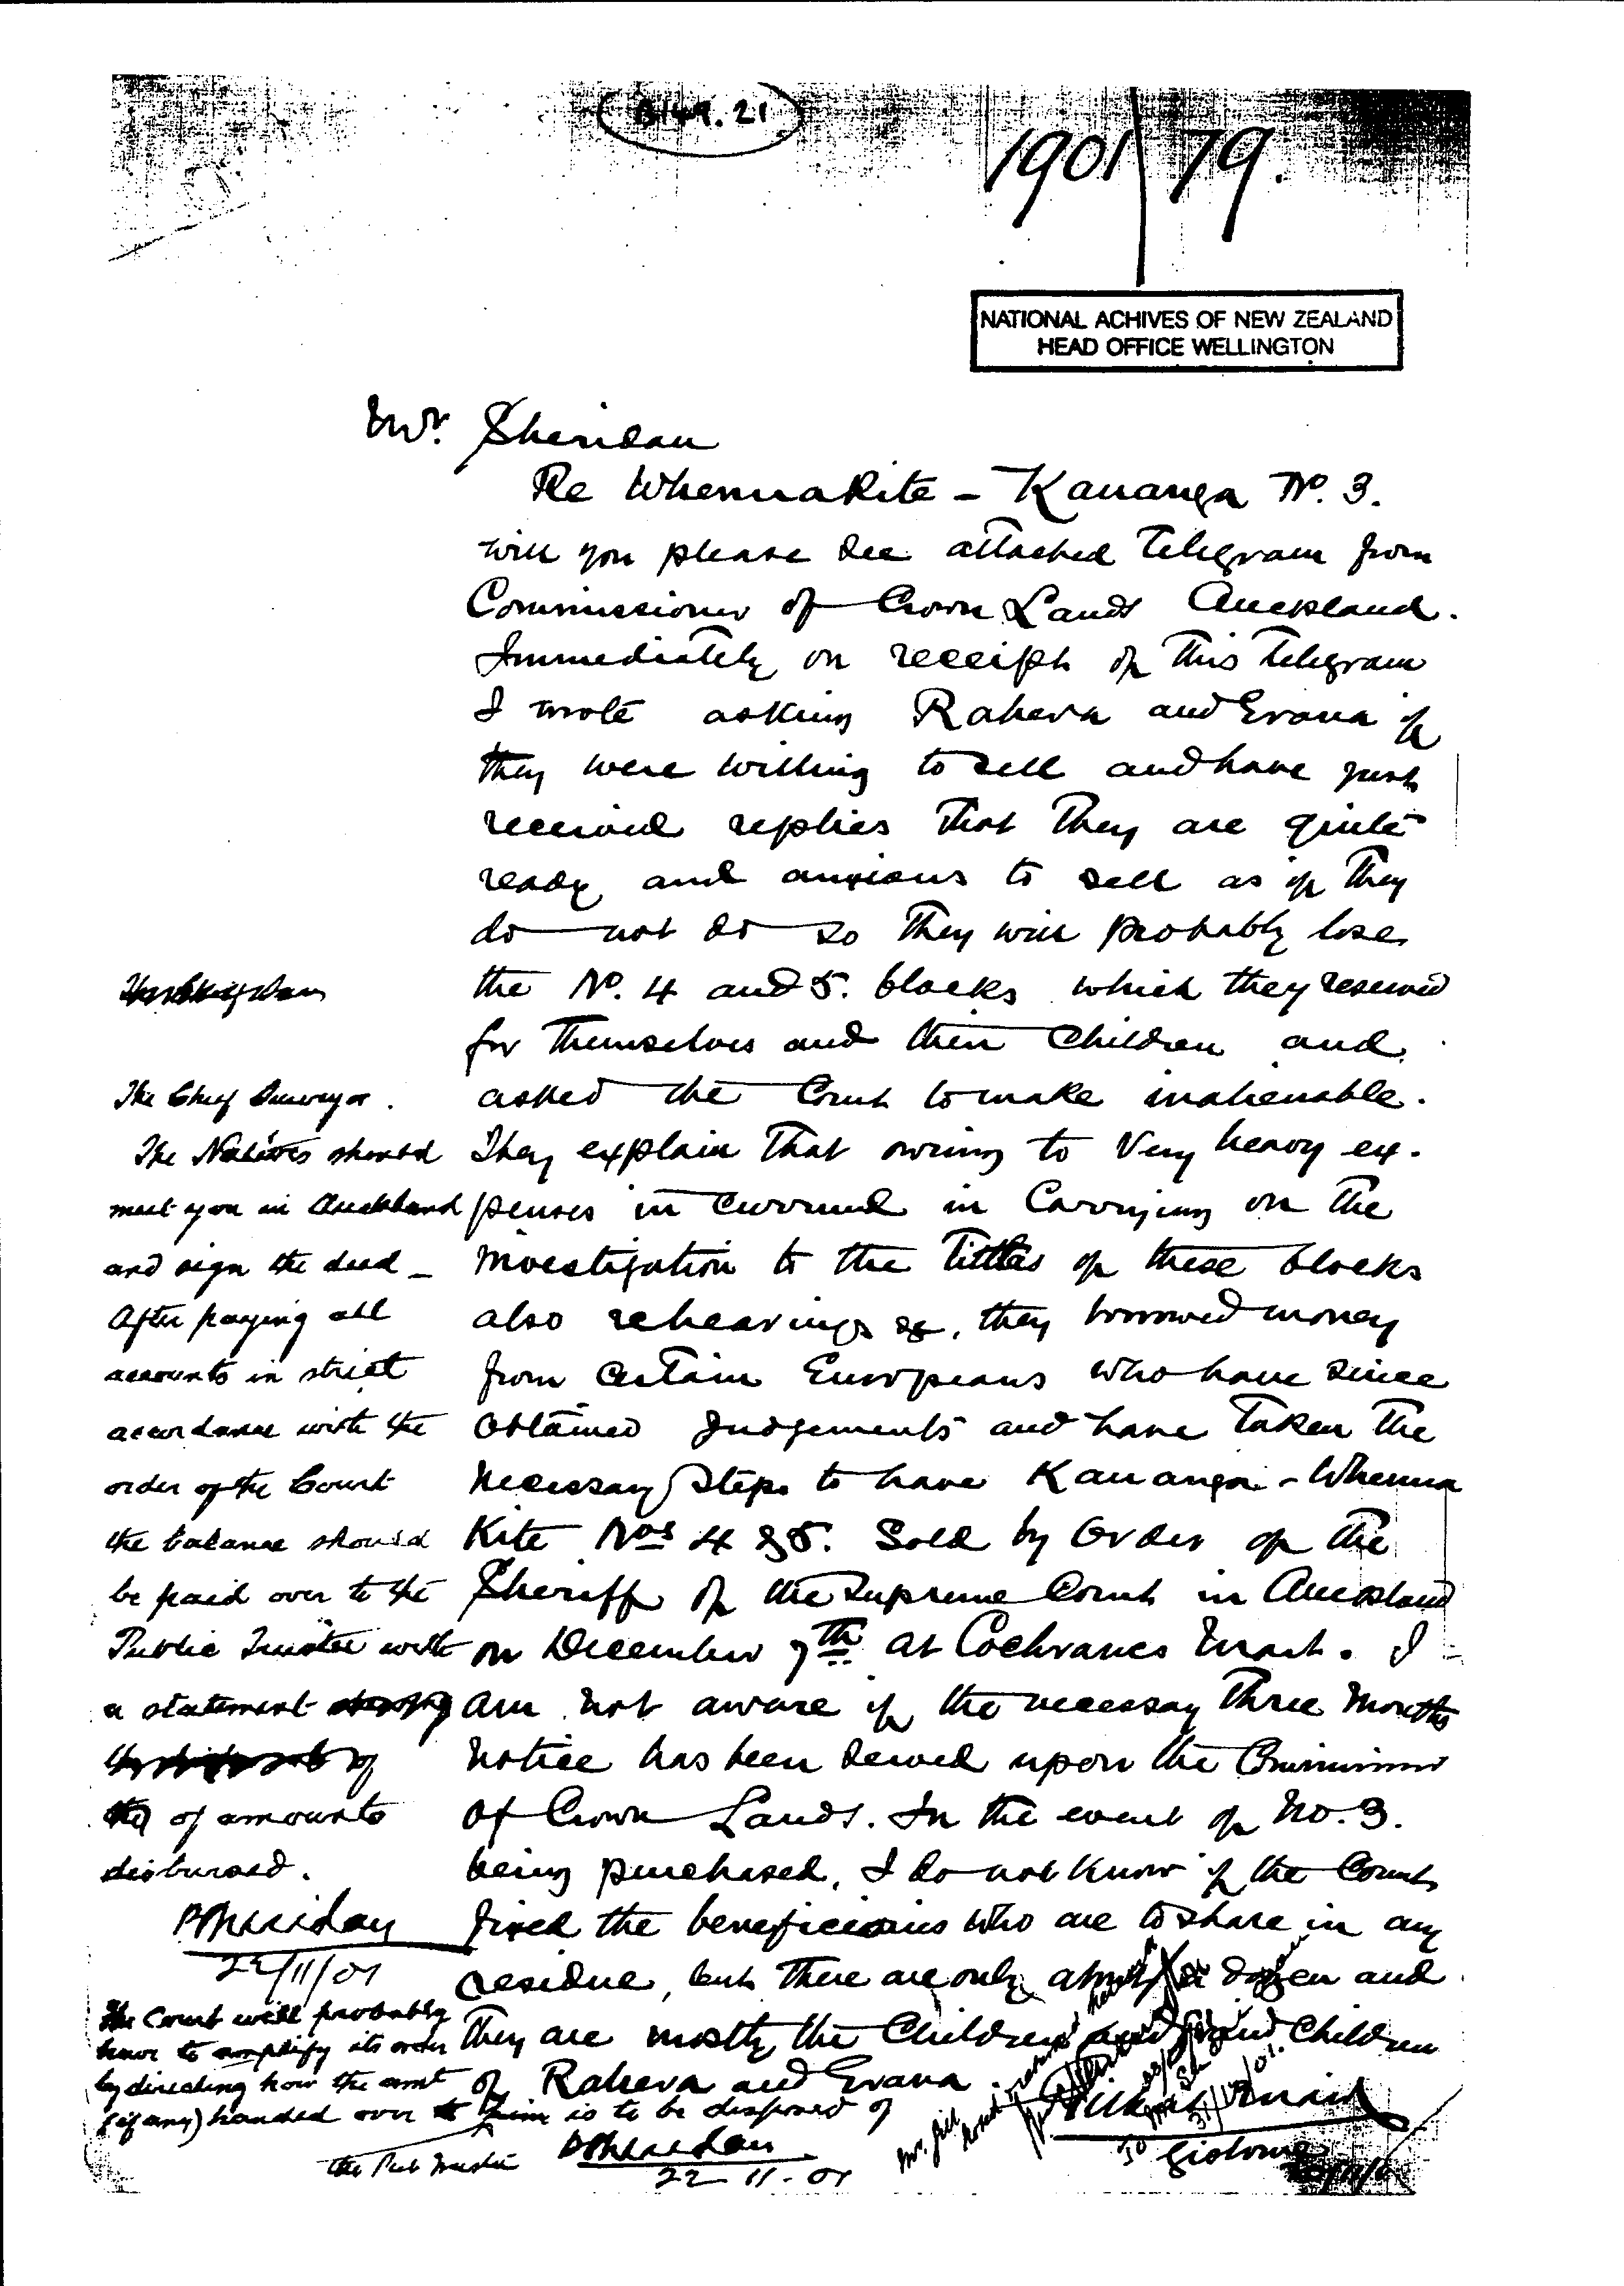 B149.21
1901 79.
NATIONAL ACHIVES OF NEW ZEALAND
HEAD OFFICE WELLINGTON
Mr. Sheridan
Re Whenuakite - Kauanga No. 3.
will you please see attached Telegram from
Commissioner of Crown Lands Auckland.
Immediately on receipt of this Telegram
I wrote asking Rahera and Erana if
they were willing to sell and have just
received replies that they are quite
ready and anxious to sell as if they
do not do so they will probably lose
the No. 4 and 5. blocks which they reserved
for themselves and their Children and
asked the Court to make inalienable.
They explain that owing to very heavy ex-
penses in curred in Carrying on the
investigation to the tittles of these blocks
also rehearings &c, they borrowed money
from certain Europeans who have since
obtained Judgements and have taken the
necessary steps to have Kauanga - Whenua
Kite Nos 4 & 5. Sold by Order of the
Sheriff of the Supreme Court in Auckland
on December 7th at Cochranes Mart. I
am not aware if the necessay three months
notice has been served upon the Commissioner
of Crown Lands. In the event of No. 3.
being purchased, I do not know if the Court
fixed the beneficiaries who are to share in any
residue, but there are only about a dozen and
they are mostly the Children and Grand Children
of Rahera and Erana.
Gisborne
The Chief Surveyor.
The Natives should
meet you in Auckland
and sign the deed -
After paying all
accounts in strict
accordance with the
order of the Court
the balance should
be paid over to the
Public Trustee with
a statement
of
of amounts
disbursed.
P Sheridan
22/11/01
The Court will probably
have to amplify its order
by directing how the amt
(if any) handed over to him is to be disposed of
the Pub Trustee
P Sheridan
22-11-01